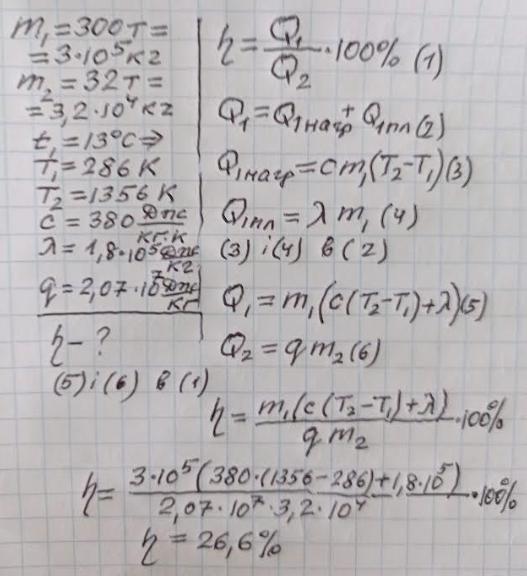 m₁=300т=
=3·10⁵кг
m₂=32т=
=3,2·10⁴кг
t₁=13°C⇒
T₁=286 K
T₂=1356 K
c=380 Дж/кг·К
λ=1,8·10⁵ Дж/кг
q=2,07·10⁷ Дж/кг
η-?
η=Q₁/Q₂·100% (1)
Q₁=Q₁нагр+Q₁пл(2)
Q₁нагр=cm₁(T₂-T₁)(3)
Q₁пл=λm₁(4)
(3) і(4) в(2)
Q₁=m₁(c(T₂-T₁)+λ)(5)
Q₂=qm₂(6)
(5)і(6) в(1)
η=m₁(c(T₂-T₁)+λ)/qm₂·100%
η=3·10⁵(380·(1356-286)+1,8·10⁵)/2,07·10⁷·3,2·10⁴·100%
η=26,6%